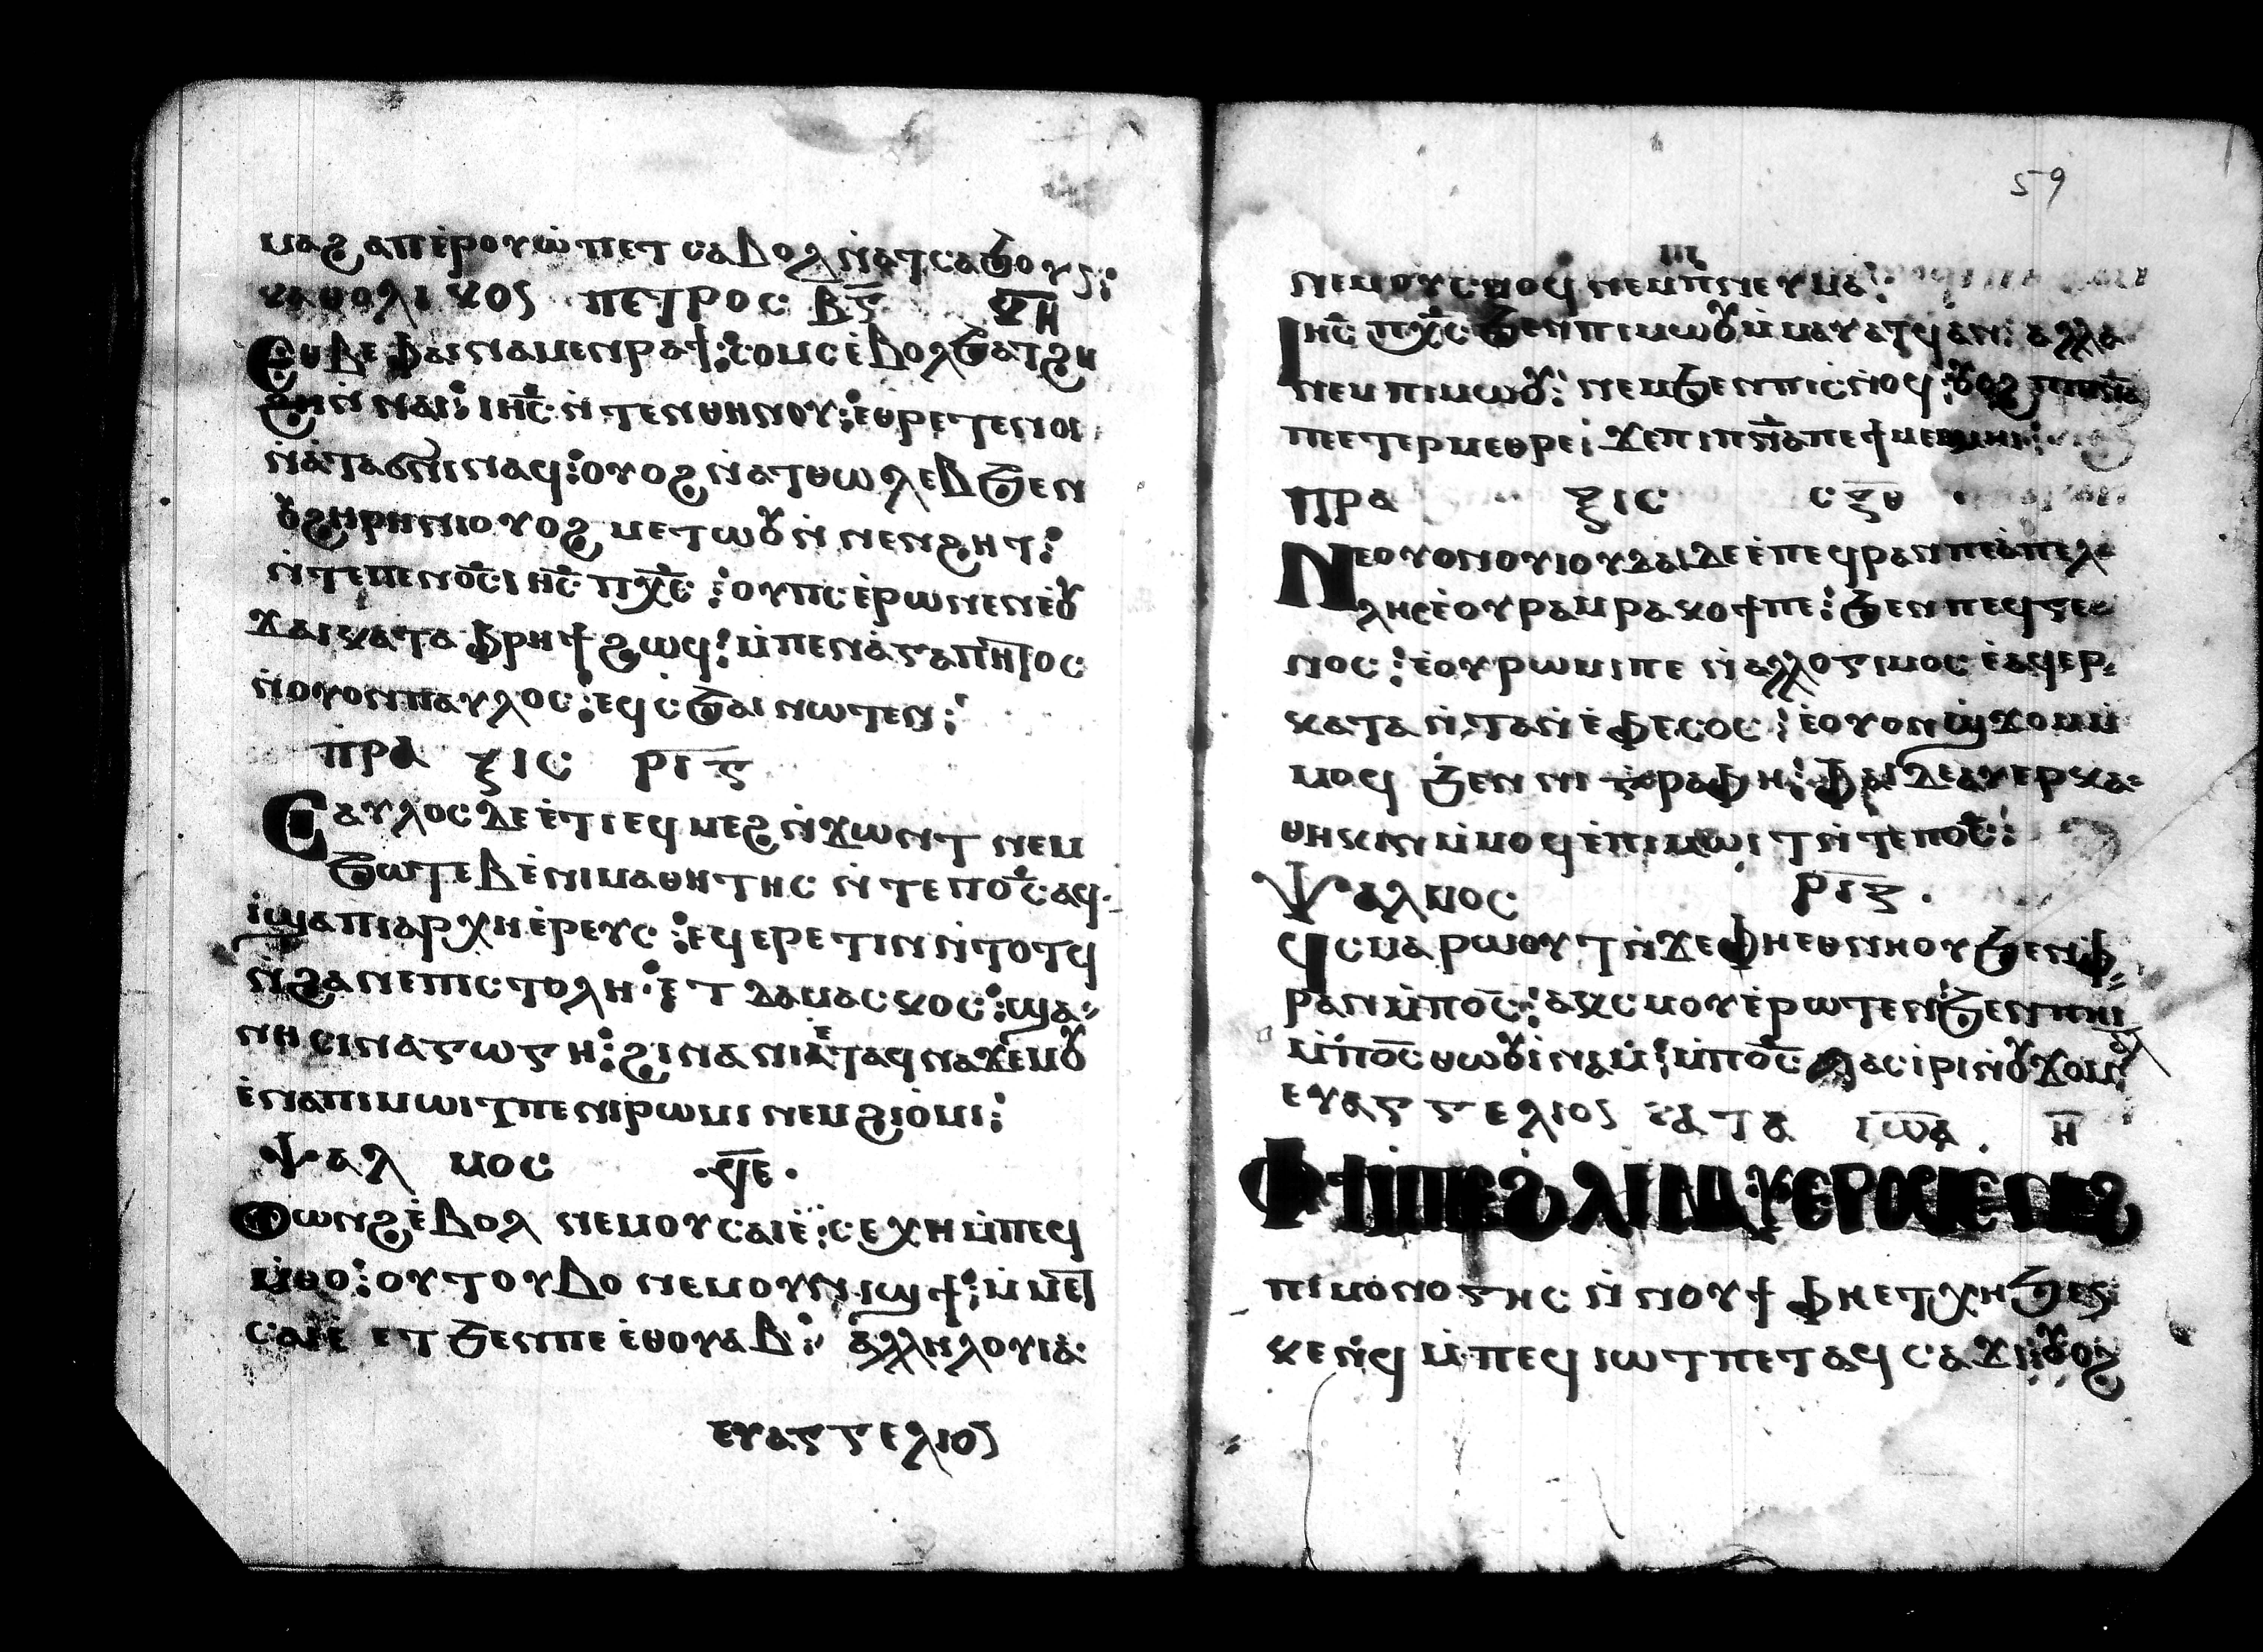 ⲙⲁϩ ⲁⲡⲉⲣⲟⲩⲱ̀ ⲡⲉⲧ ⲥⲁⲃⲟⲗ ⲛ̀ⲁⲧⲥⲁϧⲟⲩⲓ⁝
ⲕⲁⲑⲟⲗⲓⲕⲟⲥ ⲡⲉⲧⲣⲟⲥ ⲃ̅ⲋ̅
ⲉⲑⲃⲉ ⲫⲁⲓ ⲛⲁⲙⲉⲛⲣⲁϯ⁝ ⲥⲟⲙⲥ ⲉ̀ⲃⲟⲗ ϧⲁⲧϩⲏ
ϩⲏⲛ ⲛⲁⲓ⁝ ⲓⲏ̅ⲥ̅ ⲛ̀ⲧⲉⲛⲑⲏⲛⲟⲩ⁝ ⲉⲑⲣⲉⲧⲉⲛⲟⲓ
ⲛ̀ⲁⲧⲁϭⲛⲓ ⲛⲁϥ⁝ ⲟⲩⲟϩ ⲛ̀ⲁⲧⲑⲱⲗⲉⲃ ϧⲉⲛ
ⲟⲩϩⲏⲣⲏⲛⲓ ⲟⲩⲟϩ ⲙⲉⲧⲱⲟⲩ ⲛ̀ ⲛⲉⲛϩⲏⲧ⁝
ⲛ̀ⲧⲉⲡⲉⲛⲟ̅ⲥ̅ ⲓⲏ̅ⲥ̅ ⲡⲭ̅ⲥ̅ ⁝ ⲟⲩⲡⲥ ⲉ̀ⲣⲱⲛⲉⲛⲉ̀ⲟⲩ
ϫⲁⲓ ⲕⲁⲧⲁ ⲫⲣⲏϯ ϩⲱϥ⁝ ⲙ̀ⲡⲉⲛⲁ̀ⲅⲁⲡⲏⲧⲟⲥ
ⲛ̀ⲟⲩⲟⲛ ⲡⲁⲩⲗⲟⲥ⁝ ⲉϥⲥϧⲁⲓ ⲛⲱⲧⲉⲛ⁝
ⲡⲣⲁ ⲝⲓⲥ ⲣⲓⲋ̅
ⲥⲁⲩⲗⲟⲥ ⲇⲉ ⲉ̀ⲧⲓ ⲉϥⲙⲉϩ ⲛ̀ϫⲱⲛⲧ ⲛⲉⲙ
ϧⲱⲧⲉⲃ ⲉ̀ⲛⲓⲙⲁⲑⲏⲧⲏⲥ ⲛ̀ⲧⲉ ⲡⲟ̅ⲥ̅ ⲁϥ
ⲓ̀ ϣⲁ ⲡⲓⲁⲣⲭⲏⲉ̀ⲣⲉⲩⲥ ⁝ ⲉϥⲉⲣⲉⲧⲓⲛ ⲛ̀ⲧⲟⲧϥ
ⲛ̀ϩⲁⲛⲉⲡⲓⲥⲧⲟⲗⲏ⁝ ⲉ̀ⲧ ⲇⲁⲙⲁⲥⲕⲟⲥ⁝ ϣⲁ
ⲛⲏ ⲥⲓⲛⲁⲅⲱⲅⲏ⁝ ϩⲓⲛⲁ ⲛⲓⲉ̀ⲧⲁϥⲛⲁϫⲉⲙⲟⲩ
ⲉ̀ⲛⲁ ⲡⲓⲙⲱⲓⲧ ⲡⲉ ⲛⲓⲣⲱⲙⲓ ⲛⲉⲙ ϩⲓⲟ̀ⲙⲓ⁝
ⲯⲁⲗ ⲙⲟⲥ ·ϥ̅ⲉ̅·
ⲟⲩⲱⲛϩ ⲉ̀ⲃⲟⲗ ⲛⲉⲙ ⲟⲩⲥⲁⲓⲉ̀⁝ ⲥⲉⲭⲏ ⲙ̀ⲡⲉϥ
ⲙ̀ⲑⲟ⁝ ⲟⲩⲧⲟⲩⲃⲟ ⲛⲉⲙ ⲟⲩⲛⲓϣϯ⁝ ⲙ̀ⲙⲉⲧ
ⲥⲁⲓⲉ ⲉⲧ ϧⲉⲛ ⲡⲉ ⲉ̀ⲑⲟⲩⲁⲃ⁝ ⲁⲗⲗⲏⲗⲟⲩⲓⲁ·
ⲉⲩⲁⲅⲅⲉⲗⲓⲟⲥ
59
ⲛⲉⲙ ⲟⲩⲥⲛⲟϥ ⲛⲉⲙ ⲡ̀ⲛⲉⲩⲙⲁ⁝
ⲓⲏ̅ⲥ̅ ⲡⲭ̅ⲥ̅ ϧⲉⲛ ⲡⲓⲙⲱⲟⲩ ⲙ̀ⲙⲁⲩⲁⲧϥ ⲁⲛ⁝ ⲁⲗⲗⲁ
ⲛⲉⲙ ⲡⲓⲙⲱⲟⲩ⁝ ⲛⲉⲙ ϧⲉⲛ ⲡⲓⲥⲛⲟϥ⁝ ⲟⲩⲟϩ ⲡⲓⲡ̅ⲛ̅ⲁ̅
ⲡⲉⲧⲉⲣⲙⲉⲑⲣⲉ⁝ ϫⲉ ⲡⲓⲡ̅ⲛ̅ⲁ̅ ⲡⲉ ϯⲙⲉⲑⲙⲏⲓ⁝
ⲡⲣⲁ ⲝⲓⲥ ⲥⲝ̅ⲑ
ⲛⲉⲟⲩⲟⲛ ⲟⲩⲓⲟⲩⲇⲁⲓ ⲇⲉ ⲉ̀ⲡⲉϥⲣⲁⲛ ⲡⲉ ⲁ̀ⲡⲉⲗ
ⲗⲏⲥ ⲉ̀ⲟⲩⲣⲁⲙⲣⲁⲕⲟϯ ⲡⲉ⁝ ϧⲉⲛ ⲡⲉϥⲅⲉ
ⲛⲟⲥ⁝ ⲉ̀ⲟⲩⲣⲱⲙⲓ ⲡⲉ ⲛ̀ⲁⲗⲗⲟⲅⲓⲙⲟⲥ ⲉ̀ⲁϥⲉⲣ
ⲕⲁⲧⲁⲛⲧⲁⲛ ⲉ̀ⲫⲉⲥⲟⲥ⁝ ⲉ̀ⲟⲩⲟⲛ ϣϫⲟⲙ ⲙ̀
ⲙⲟϥ ϧⲉⲛ ⲛⲓⲅⲣⲁⲫⲏ⁝ ⲫⲁⲓ ⲇⲉ ⲁⲩⲉⲣⲕⲁ
ⲑⲏⲕⲓⲛ ⲙ̀ⲙⲟϥ ⲉ̀ⲡⲓⲙⲱⲓⲧ ⲛ̀ⲧⲉ ⲡⲟ̅ⲥ̅⁝
ⲯⲁⲗⲙⲟⲥ ⲣⲓⲍ̅·
ϥⲥⲙⲁⲣⲱⲟⲩⲧ ⲛ̀ϫⲉ ⲫⲏⲉⲑⲛⲏⲟⲩ ϧⲉⲛ ⲫ
ⲣⲁⲛ ⲙ̀ⲡⲟ̅ⲥ̅⁝ ⲁⲕⲥⲙⲟⲩ ⲉ̀ⲣⲱⲧⲉⲛ ϧⲉⲛ ⲡⲏⲓ
ⲙ̀ⲡⲟ̅ⲥ̅ ⲑⲱⲟⲩⲓ̀ⲛⲁⲙ̀⁝ ⲙ̀ⲡⲟ̅ⲥ̅ ⲁⲥⲓ̀ⲣⲓ ⲛ̀ⲟⲩϫⲟⲙ
ⲉⲩⲁⲅⲅⲉⲗⲓⲟⲥ ⲕⲁⲧⲁ ⲓⲱ̅ⲁ̅ · ⲏ̅
ⲡⲓⲙⲟⲛⲟⲅⲏⲥ ⲛ̀ⲛⲟⲩϯ ⲫⲏⲉⲧⲭⲏ ϧⲉⲛ
ⲕⲉⲛϥ ⲙ̀ⲡⲉϥⲓⲱⲧ ⲡⲉⲧⲁϥⲥⲁϫⲓ⁝ ⲟⲩⲟϩ